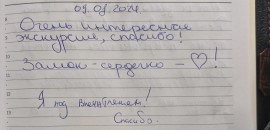 09.03.2024
Очень интересная
экскурсия, спасибо!
Замок - сердечко - ♡!
Я под впечатлением!
Спасибо.